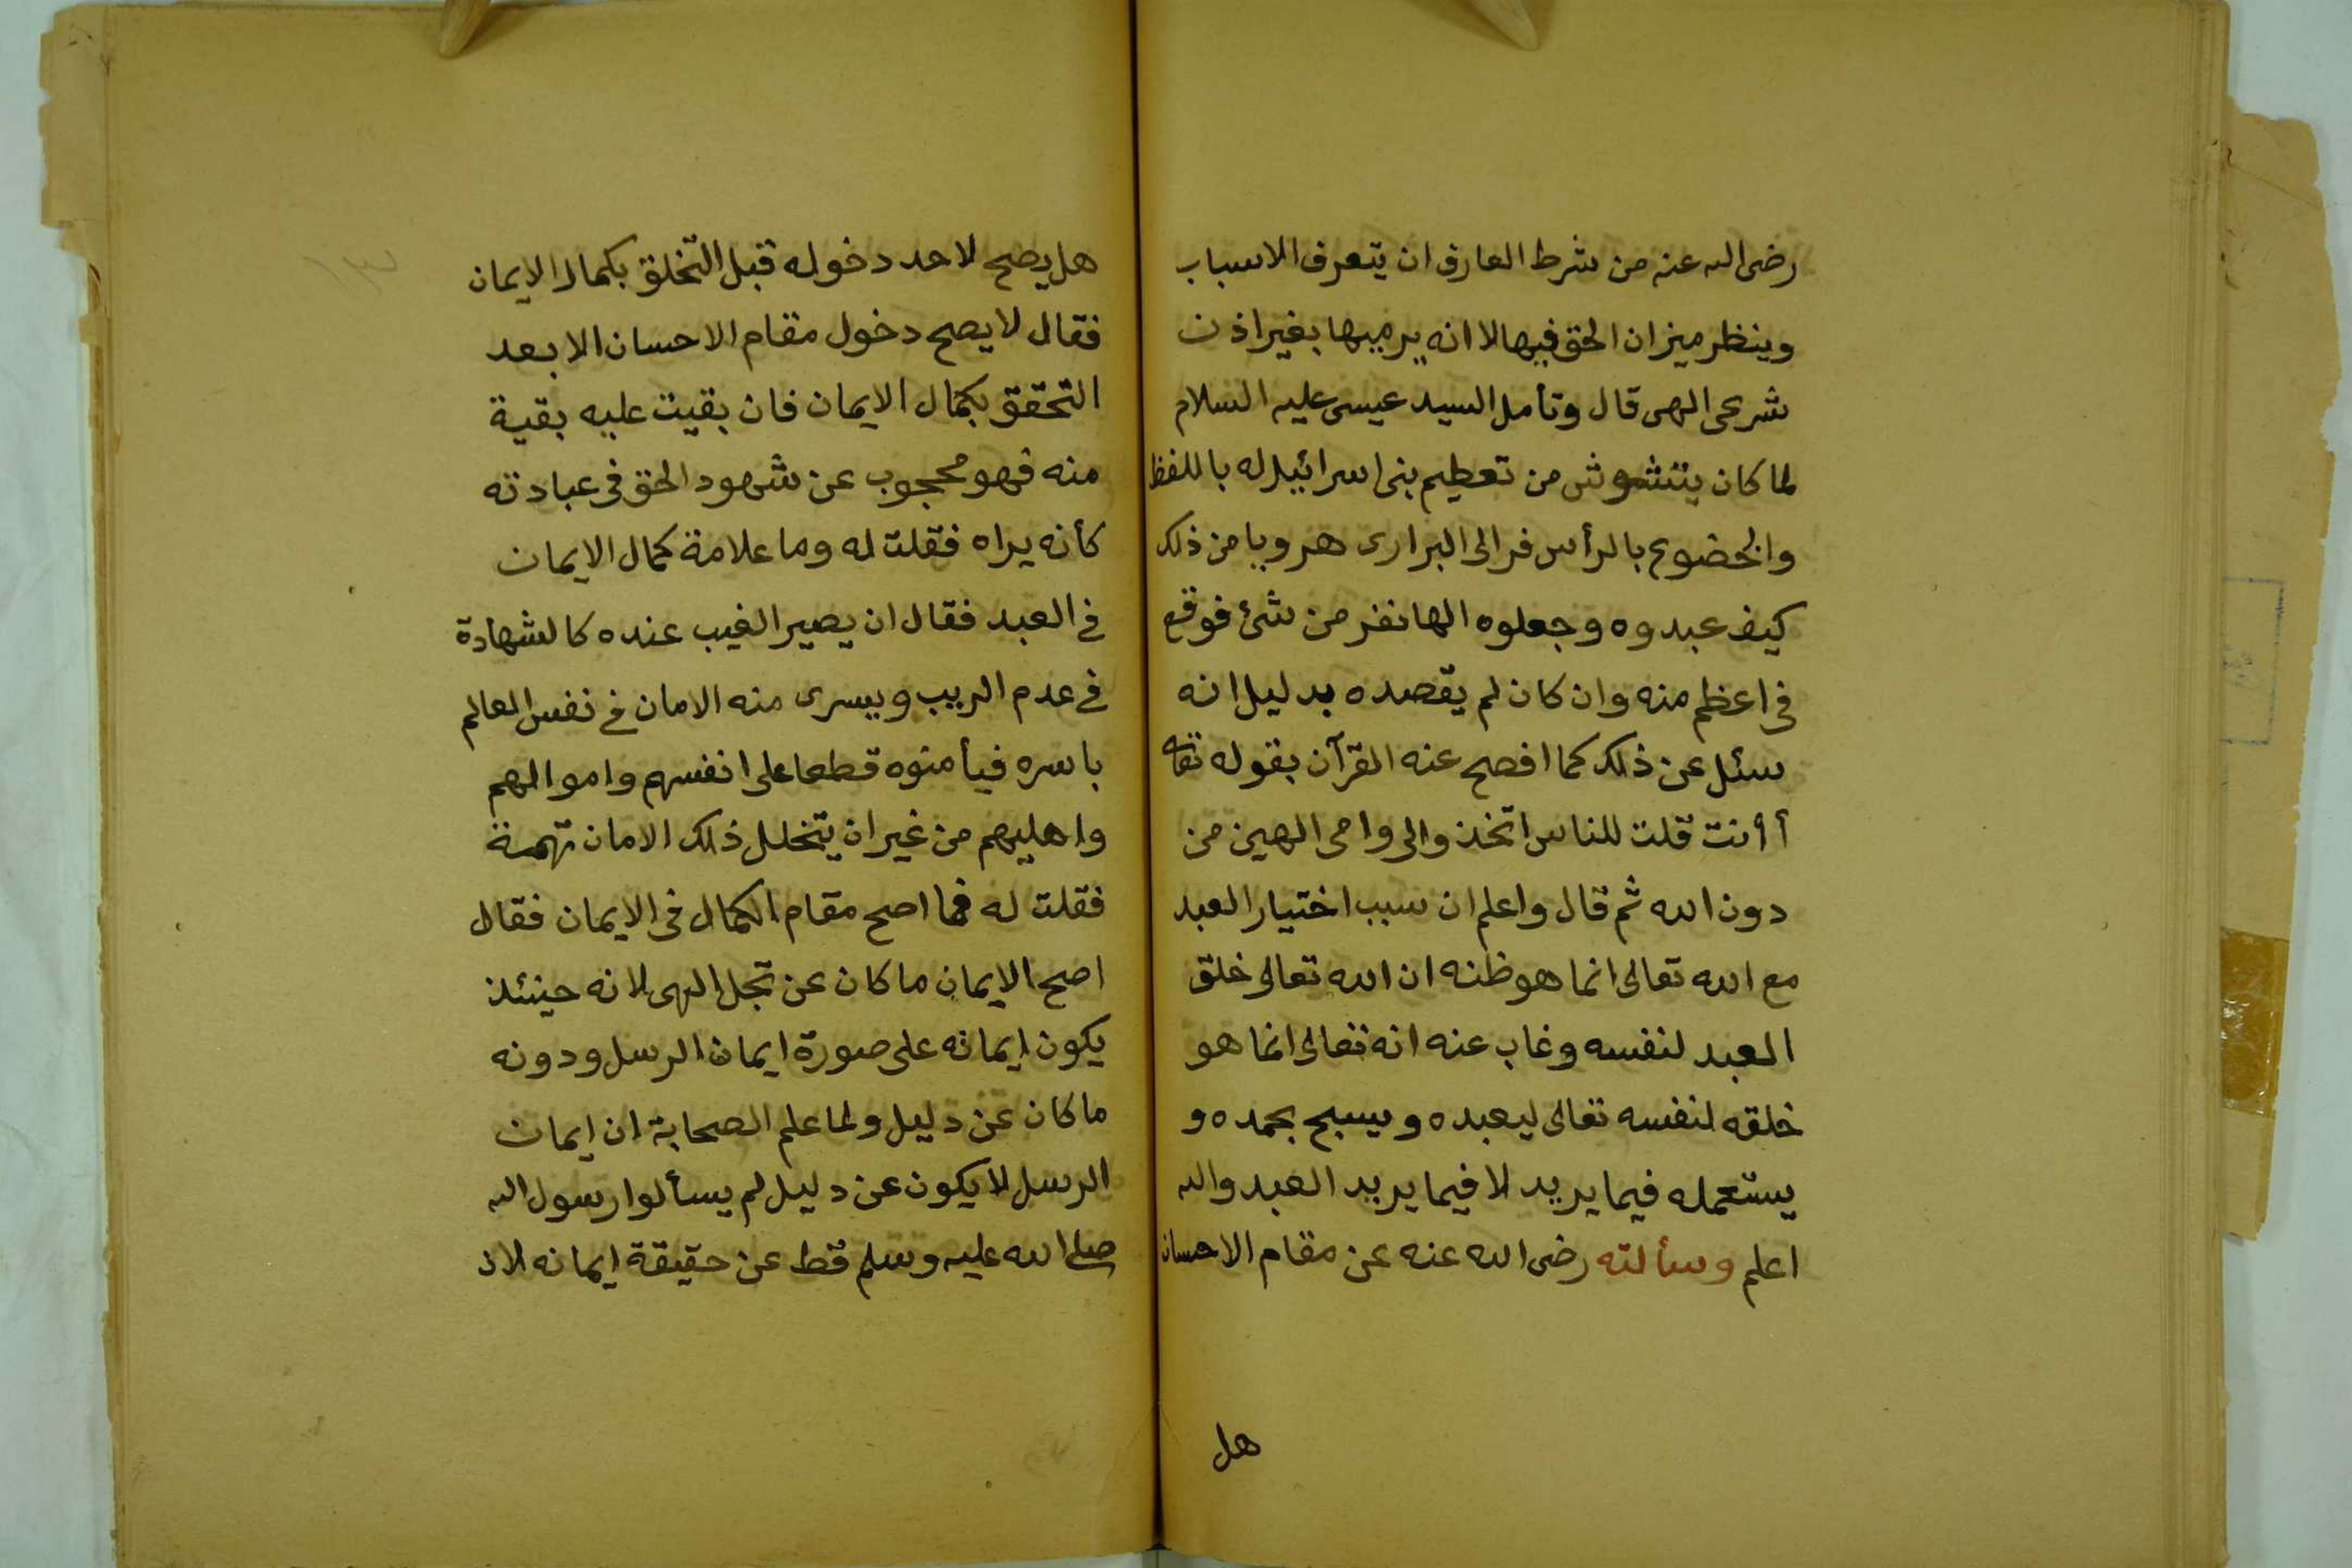 رضى الله عنه من شرط العارف ان يتعرف الاسباب
وينظر ميزان الحق فيها لا انه يرميها بغير اذن
شرعى الهى قال وتأمل السيد عيسى عليه السلام
لما كان يتشوش من تعظيم بنى اسرائيل له باللفظ
والخضوع بالرأس فر الى البرارى هروبا من ذلك
كيف عبدوه وجعلوه الها نفر من شئ فوقع
فى اعظم منه وان كان لم يقصده بدليل انه
سئل عن ذلك كما افصح عنه القرآن بقوله تعا
أأنت قلت للناس اتخذوالى وامى الهين من
دون الله ثم قال واعلم ان سبب اختيار العبد
مع الله تعالى انما هو ظنه ان الله تعالى خلق
العبد لنفسه وغاب عنه انه تعالى انما هو
خلقه لنفسه تعالى ليعبده ويسبح بحمده و
يستعمله فيما يريد لا فيما يريد العبد والله
اعلم وسألته رضى الله عنه عن مقام الاحسان
هل
هل يصح لاحد دخوله قبل التخلق بكمال الايمان
فقال لا يصح دخول مقام الاحسان الا بعد
التحقق بكمال الايمان فان بقيت عليه بقية
منه فهو محجوب عن شهود الحق فى عبادته
كأنه يراه فقلت له وما علامة كمال الايمان
فى العبد فقال ان يصير الغيب عنده كالشهادة
فى عدم الريب ويسرى منه الامان فى نفس العالم
باسره فيأمنوه قطعا على انفسهم واموالهم
واهليهم من غير ان يتخلل ذلك الامان تهمة
فقلت له فما اصح مقام الكمال فى الايمان فقال
اصح الايمان ما كان عن تجل الهى لانه حينئذ
يكون ايمانه على صورة ايمان الرسل ودونه
ما كان عن دليل ولما علم الصحابة ان ايمان
الرسل لا يكون عن دليل لم يسألوا رسول الله
صلى الله عليه وسلم قط عن حقيقة ايمانه لان